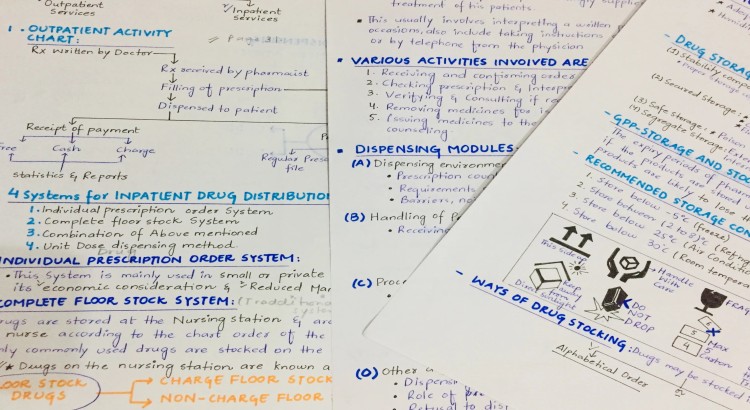 Outpatient Services
Inpatient Services
1. OUTPATIENT ACTIVITY
CHART:
Rx written by Doctor
Rx received by pharmacist
Filling of prescription
Dispensed to patient
Receipt of payment
Free Cash Charge
Statistics & Reports
Regular
file
4 Systems for INPATIENT DRUG DISTRIBUTIO
1. Individual prescription order System
2. Complete floor stock System
3. Combination of Above mentioned
4. Unit Dose dispensing method
INDIVIDUAL PRESCRIPTION ORDER SYSTEM:
• This System is mainly used in small or private
its economic consideration & Reduced Man
COMPLETE FLOOR STOCK SYSTEM:
rugs are stored at the Nursing station & are
nurse according to the chart order of the
ly commonly used drugs are stocked on the
* Drugs on the nursing station are known a
OOR STOCK
DRUGS
CHARGE FLOOR STOCK
NON-CHARGE FLOOR
treatment of his patients.
• This usually involves interpreting a written
occasions, also include taking instructions
or by telephone from the physician
• VARIOUS ACTIVITIES INVOLVED ARE
1. Receiving and confirming order
2. Checking prescription & Interp
3. Verifying & Consulting if re
4. Removing medicines for
5. Issuing medicines to the
counseling
• DISPENSING MODULES:
(A) Dispensing environme
• Prescription cou
• Requirements
• Barriers, no
(B) Handling of P
• Receivin
(C) Proc
(D) Other a
• Dispensi
• Role of
• Refusal to disp
- DRUG STORAG
(1) Stability
(2) Secured Storage:
(3) Safe storage:
(4) Segregate storage:
- GPP-STORAGE AND STOC
The expiry periods of pharm
if the products
products are likely to lose
- RECOMMENDED STORAGE CON
1. Store below -5°C (Freeze)
2. Store between (2 to 8)°C (Refrig
3. Store below 25°C (Air Conditi
4. Store below 30°C (Room tempera
This side up
Handle With care
FRAG
Keep away
Direct from Sunlight
DO NOT DROP
5 Max
4 Carton
- WAYS OF DRUG STOCKING: Drugs may be stocked
Alphabetical Order
or